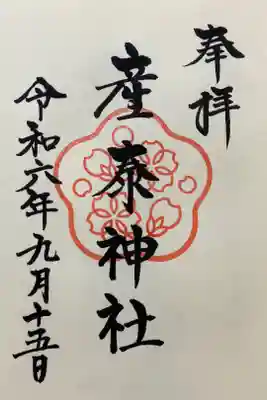 奉拝
産泰神社
令和六年九月十五日